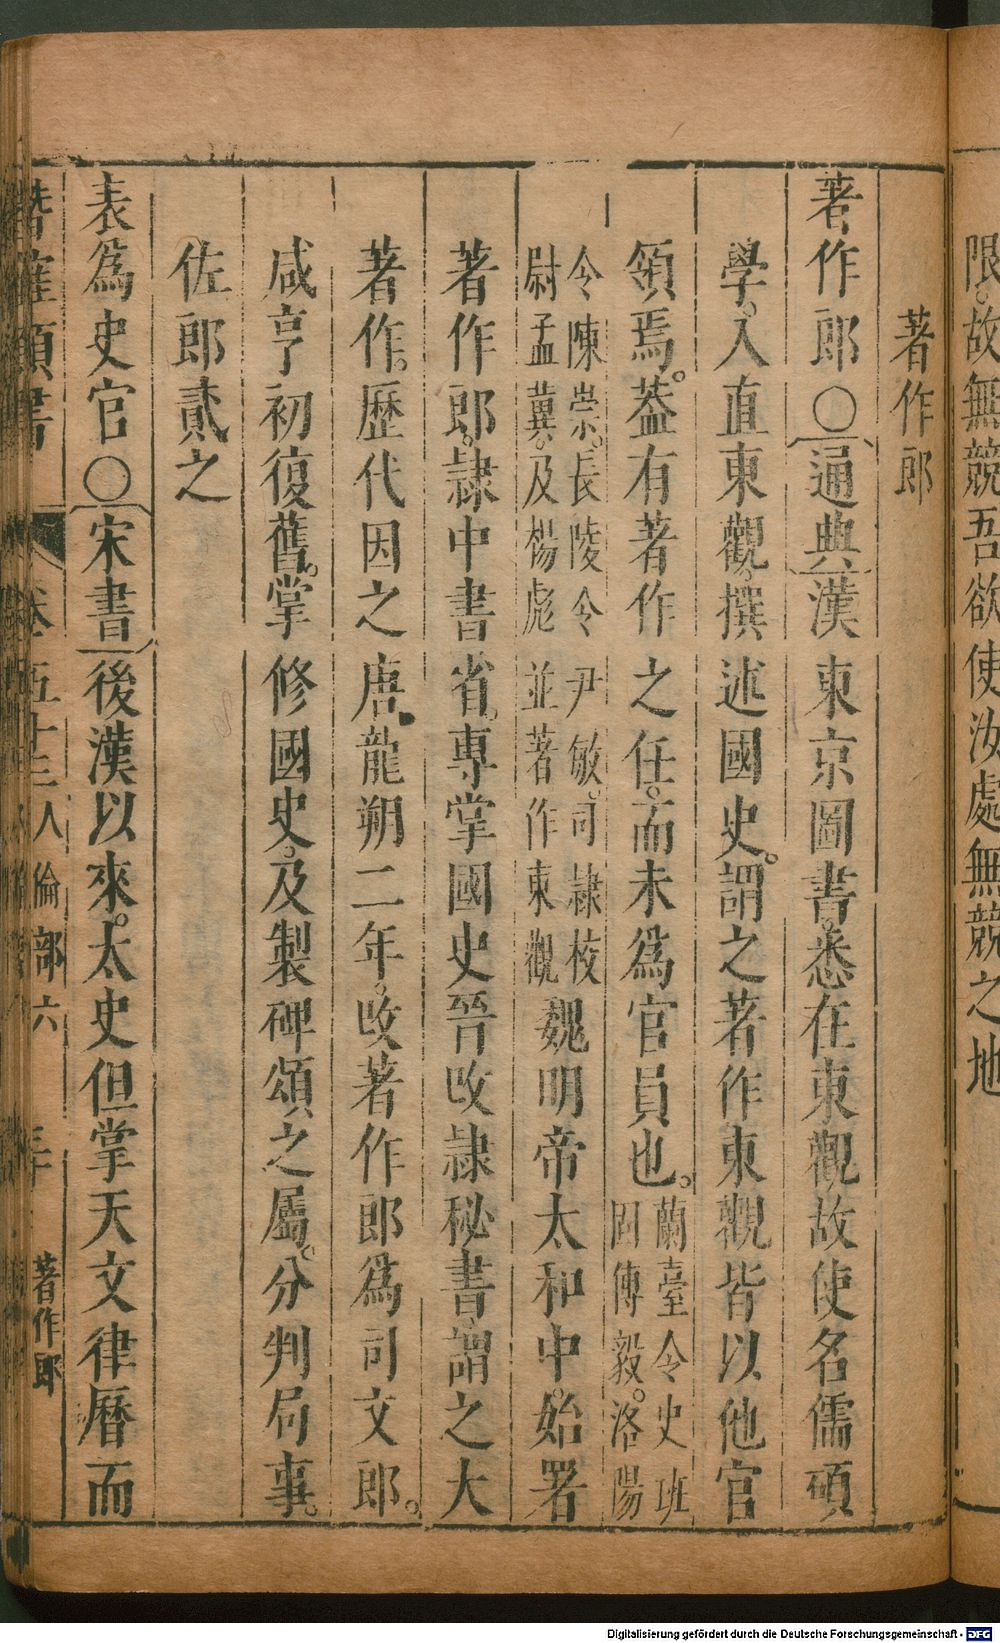 限。故無競吾欲使汝處無競之地
著作郎
著作郎〇通典漢東京圖書悉在東觀故使名儒碩
學。入直東觀。撰述國史。謂之著作東觀皆以他官
領焉。葢有著作之任。而未為官員也。蘭臺令史班固傅毅。洛陽
令陳崇。長陵令尹敏。司隷校尉孟冀。及楊彪並著作東觀魏明帝太和中。始署
著作郎。隷中書省。專掌國史晉改隷秘書。謂之大
著作。歷代因之唐龍朔二年。改著作郎為司文郎。
咸亨初復舊。掌修國史。及製碑頌之屬。分判局事。
佐郎貳之
表為史官〇宋書後漢以來。太史但掌天文律曆而
卷五十三 人倫部六 著作郎
Digitalisierung gefördert durch die Deutsche Forschungsgemeinschaft - DFG